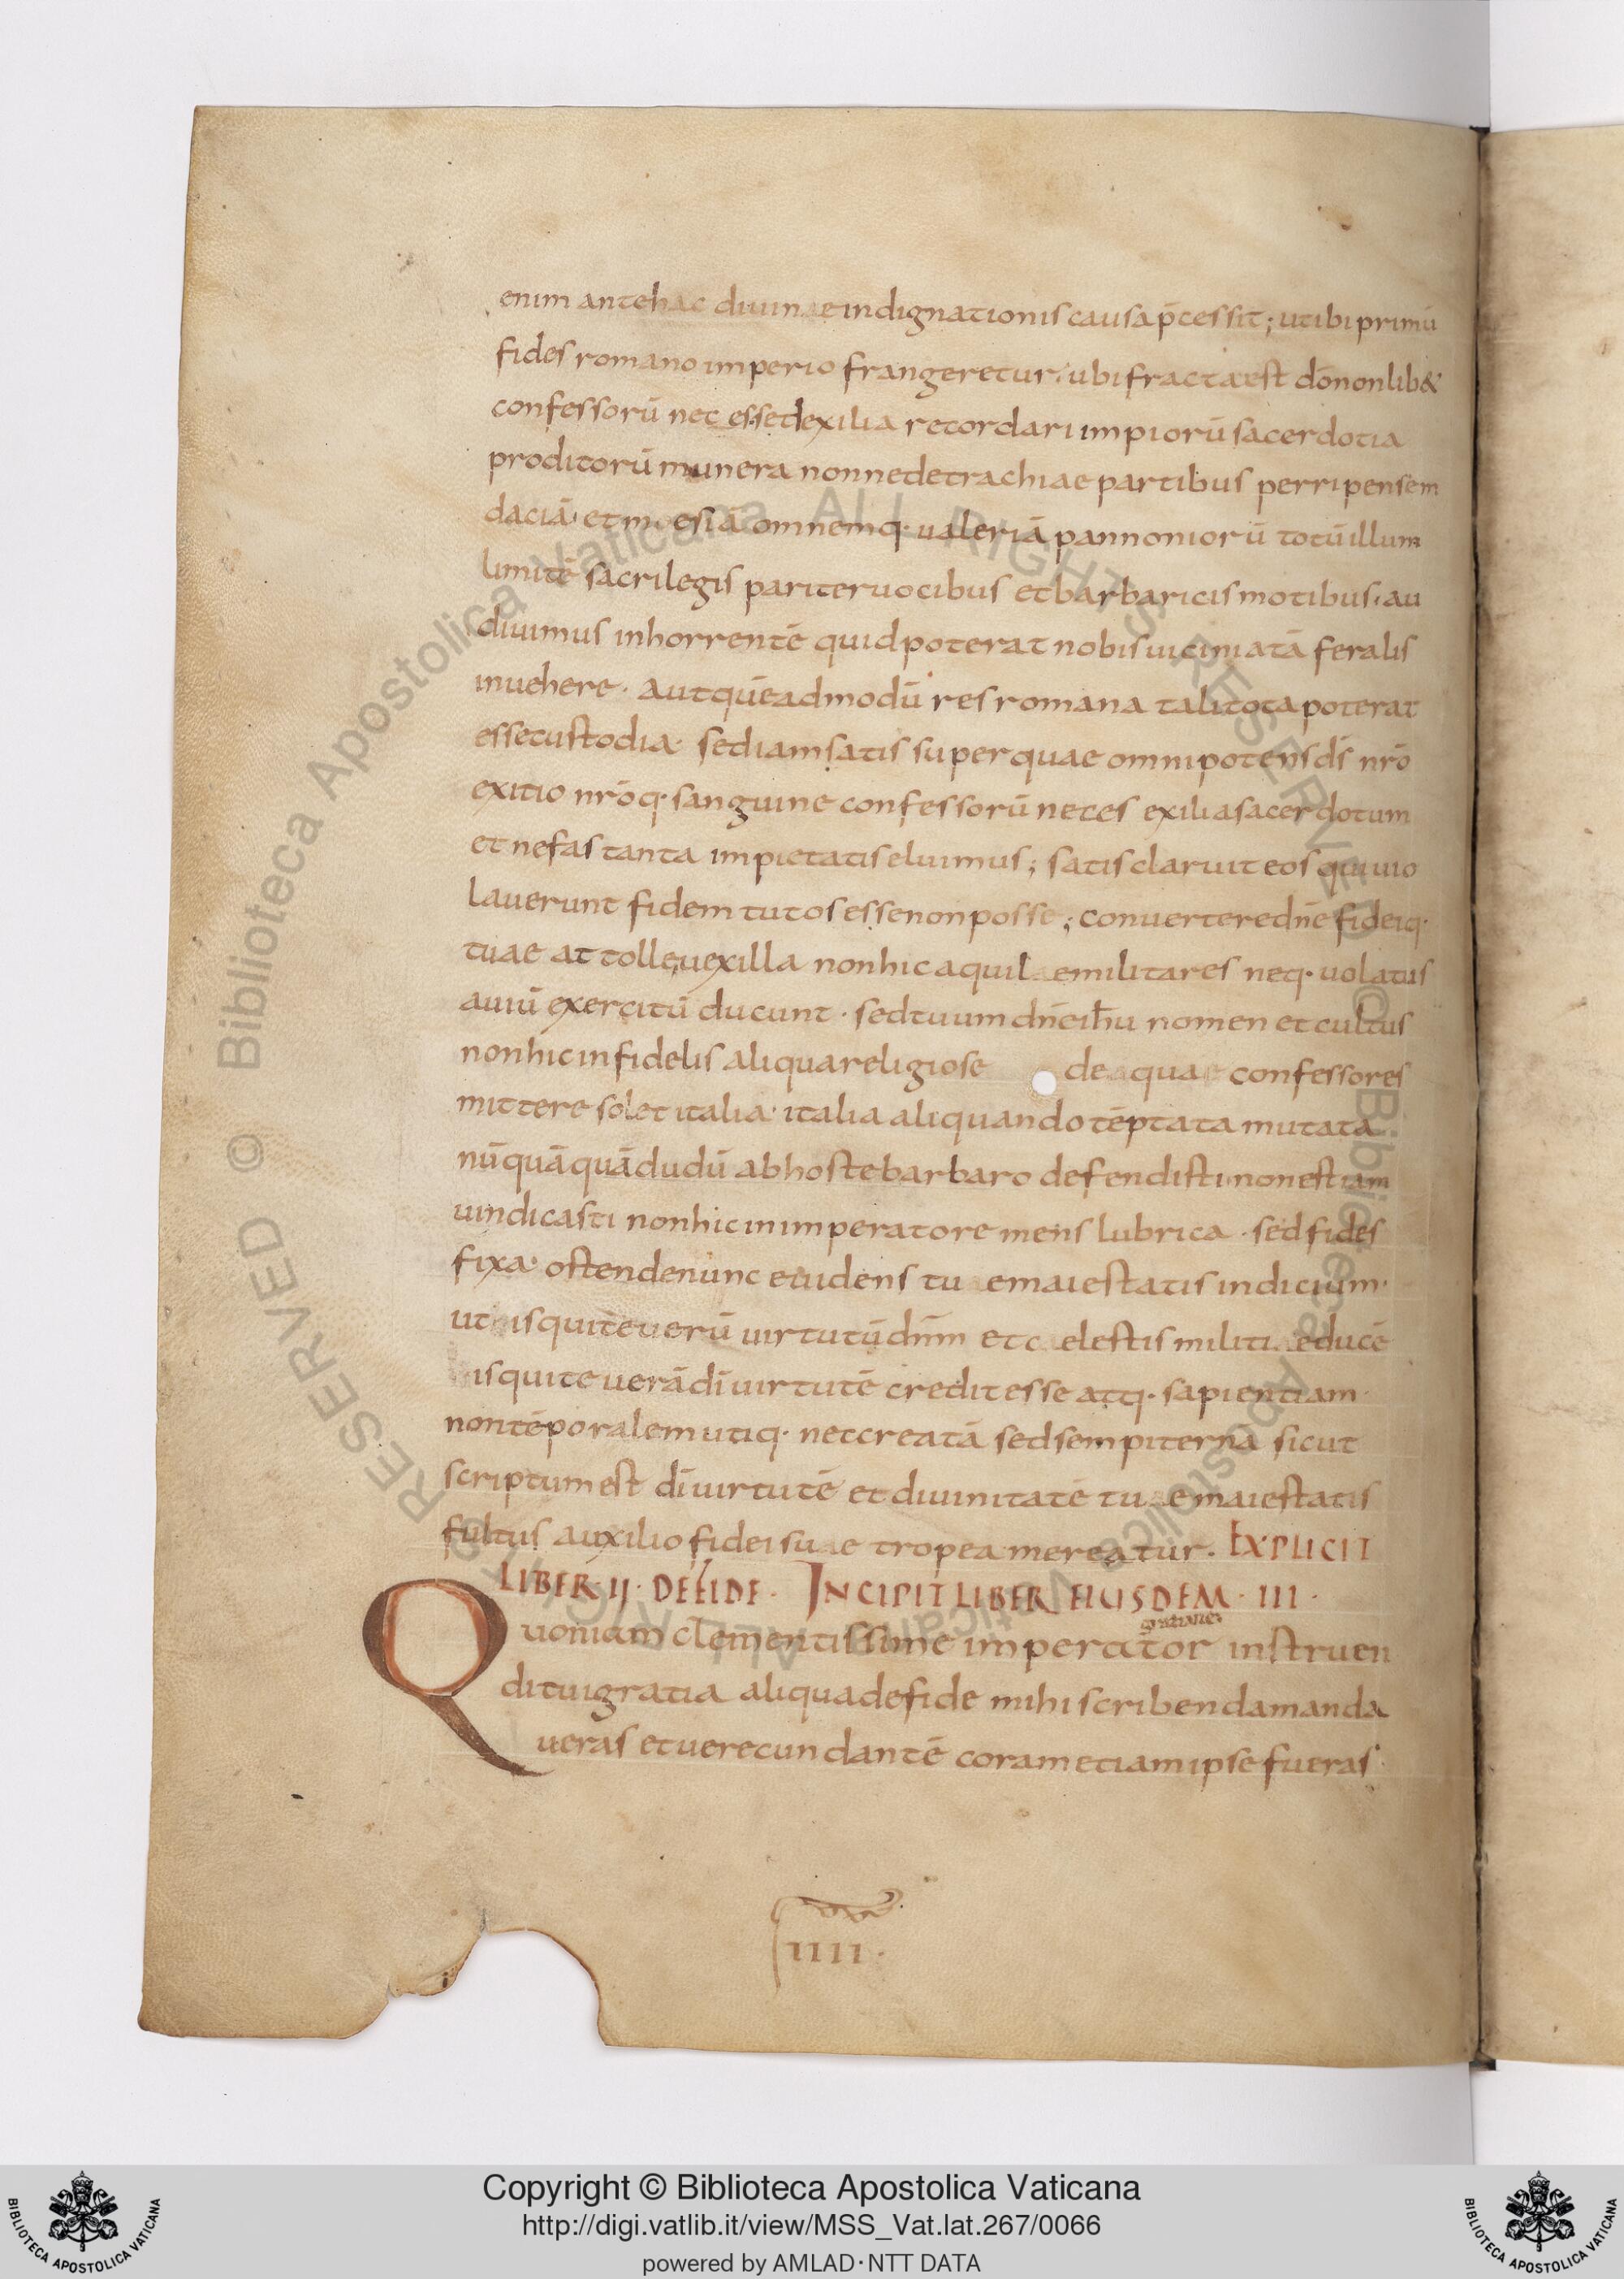 enim antehac diuinae indignationis causa p̄cessit; ut ibi primū
fides romano imperio frangeretur· ubi fracta est dō non lib&
confessorū nec essed exilia recordari impiorū sacerdotia
proditorū munera nonne de trachiae partibus per ripensem
daciā· et moesiā omnemq· ualeriā pannoniorū totū illum
limitē sacrilegis pariter uocibus et barbaricis motibus· au
diuimus inhorrentē quid poterat nobis uicinia tā feralis
inuehere· aut quēadmodū res romana tali tota poterat
esse custodia· sed iam satis superquae omnipotens d̄s nr̄o
exitio nr̄oq· sanguine confessorū neces exilia sacerdotum
et nefas tanta impietatis eluimus; satis claruit eos qui uio
lauerunt fidem tutos esse non posse; conuertere dn̄e fideiq·
tuae attolle uexilla non hic aquilae militares neq· uolatus
auiū exercitū ducunt· sed tuum dn̄e ih̄u nomen et cultus
non hic infidelis aliqua religiose de a quae confessores
mittere solet italia· italia aliquando tēptata mutata
nūquā quā dudū ab hoste barbaro defendisti non est iam
uindicasti non hic in imperatore mens lubrica· sed fides
fixa· ostende nunc euidens tuae maiestatis indicium·
ut is qui tē uerū uirtutū dn̄m et caelestis militiae ducē
is qui te uerā dī uirtutē credit esse atq· sapientiam
non tēporalem utiq· nec creatā sed sempiternā sicut
scriptum est dī uirtutē et diuinitatē tuae maiestatis
fultus auxilio fidei suae tropea mereatur. EXPLICIT
LIBER II· DE FIDE· INCIPIT LIBER EIUSDEM· III·
gratiane
Quoniam clementissime imperator instruen
di tui gratia aliqua de fide mihi scribenda manda
ueras et uerecundantē coram etiam ipse fueras
IIII·
Copyright © Biblioteca Apostolica Vaticana
http://digi.vatlib.it/view/MSS_Vat.lat.267/0066
powered by AMLAD·NTT DATA
BIBLIOTECA APOSTOLICA VATICANA
BIBLIOTECA APOSTOLICA VATICANA
© Biblioteca Apostolica Vaticana ALL RIGHTS RESERVED
© Biblioteca Apostolica Vaticana ALL RIGHTS RESERVED